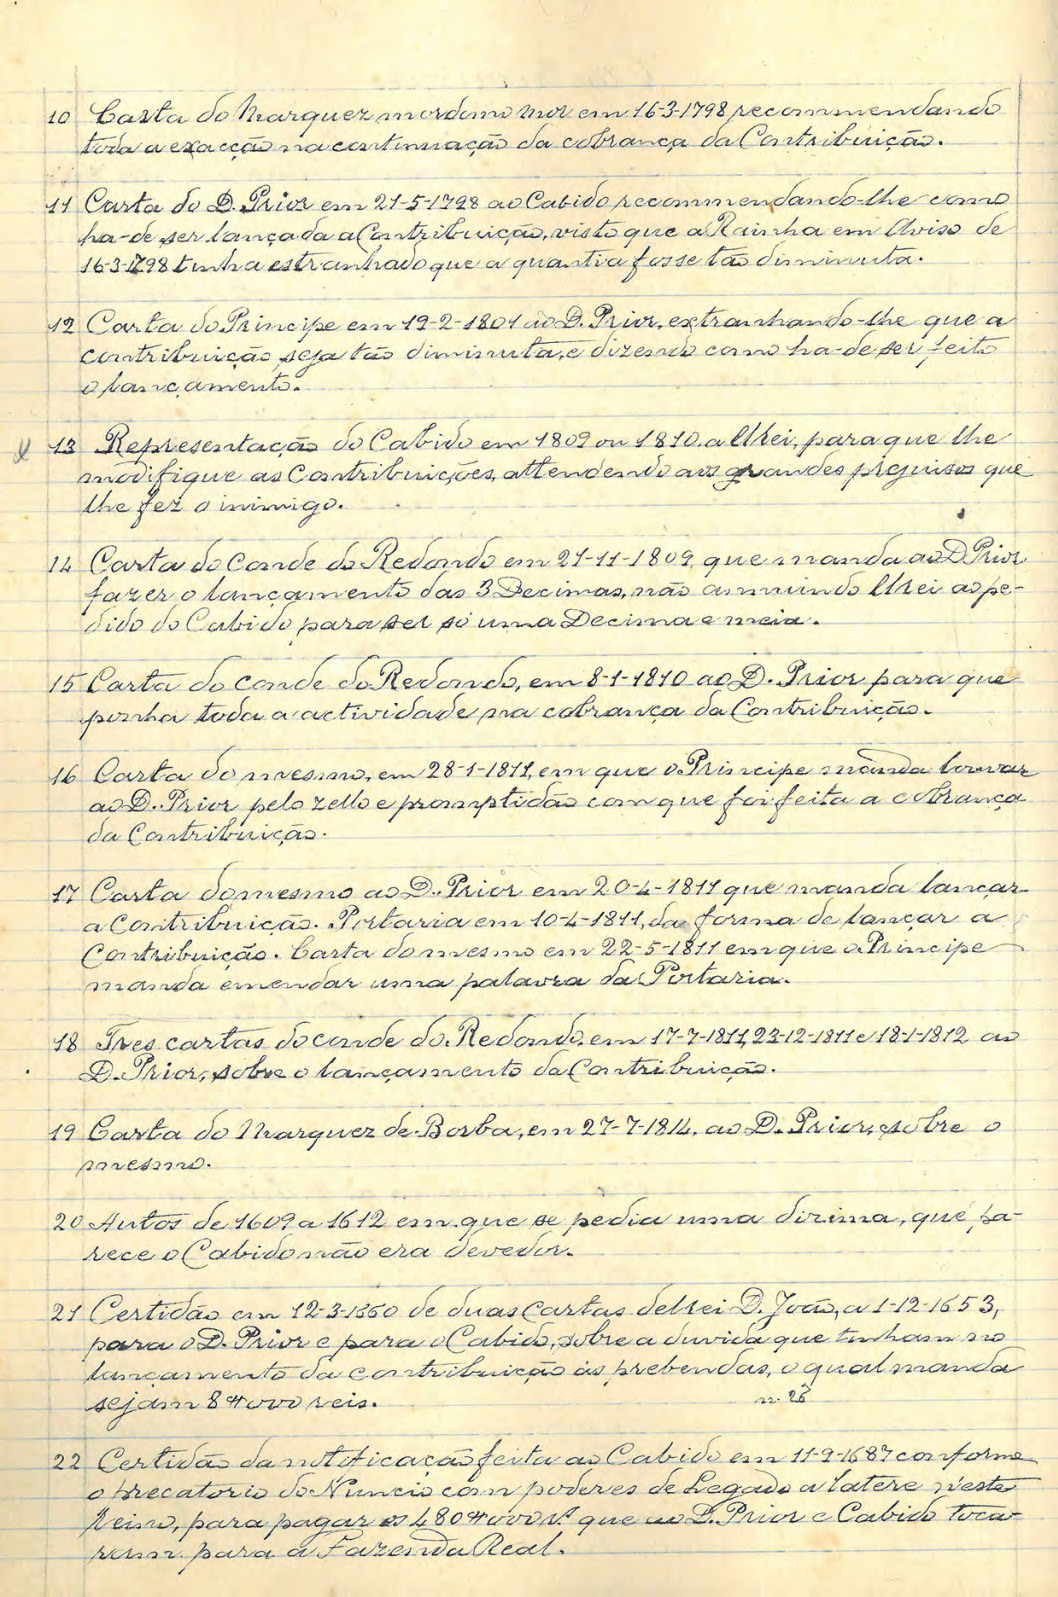 10 Carta do Marquez mordomo mor em 16-3-1798, recommendando
toda a exacção na continuação da cobrança da Contribuição.
11 Carta do D. Prior em 21-5-1798 ao Cabido recommendando-lhe como
ha-de ser lançada a Contribuição, visto que a Rainha em Aviso de
16-3-1798 tinha estranhado que a quantia fosse tão diminuta.
12 Carta do Principe em 19-2-1801 ao D. Prior, extranhando-lhe que a
contribuição seja tão diminuta, e dizendo como ha-de ser feito
o lançamento.
13 Representação do Cabido em 1809 ou 1810, a Elrei, para que lhe
modifique as Contribuições, attendendo aos grandes prejuisos que
lhe fez o inimigo.
14 Carta do Conde do Redondo em 21-11-1809, que manda ao D. Prior
fazer o lançamento das 3 Decimas, não annuindo Elrei ao pe-
dido do Cabido para ser só uma Decima e meia.
15 Carta do Conde do Redondo, em 8-1-1810 ao D. Prior para que
ponha toda a actividade na cobrança da Contribuição.
16 Carta do mesmo, em 28-1-1811, em que o Principe manda louvar
ao D. Prior pelo zello e promptidão com que foi feita a cobrança
da Contribuição.
17 Carta do mesmo ao D. Prior em 20-4-1811 que manda lançar
a Contribuição. Portaria em 10-4-1811, da forma de lançar a
Contribuição. Carta do mesmo em 22-5-1811 em que o Principe
manda emendar uma palavra da Portaria.
18 Tres cartas do conde do Redondo, em 17-7-1811, 23-12-1811 e 18-1-1812 ao
D. Prior, sobre o lançamento da Contribuição.
19 Carta do Marquez de Borba, em 27-7-1814, ao D. Prior, sobre o
mesmo.
20 Autos de 1609 a 1612 em que se pedia uma dizima, que pa-
rece o Cabido não era devedor.
21 Certidão em 12-3-1360 de duas Cartas delrei D. João, a 1-12-1653,
para o D. Prior e para o Cabido, sobre a duvida que tinham no
lançamento da contribuição ás prebendas, o qual manda
sejam 8#000 reis.
n. 26
22 Certidão da notificação feita ao Cabido em 11-9-1687 conforme
o precatorio do Nuncio com poderes de Legado a latere n'este
Reino, para pagar os 480#000 rs que ao D. Prior e Cabido toca-
ram para a Fazenda Real.